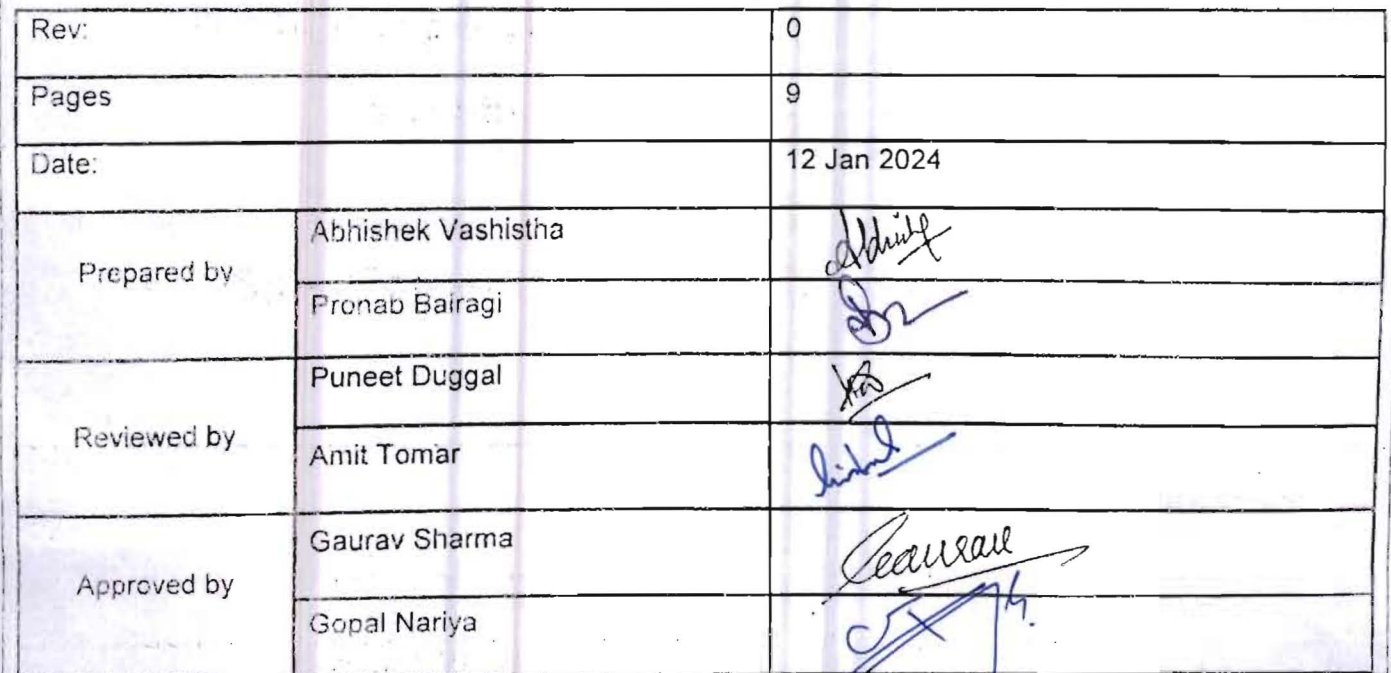 Rev: 0
Pages 9
Date: 12 Jan 2024
Prepared by
Abhishek Vashistha
Pronab Bairagi
Reviewed by
Puneet Duggal
Amit Tomar
Approved by
Gaurav Sharma
Gopal Nariya